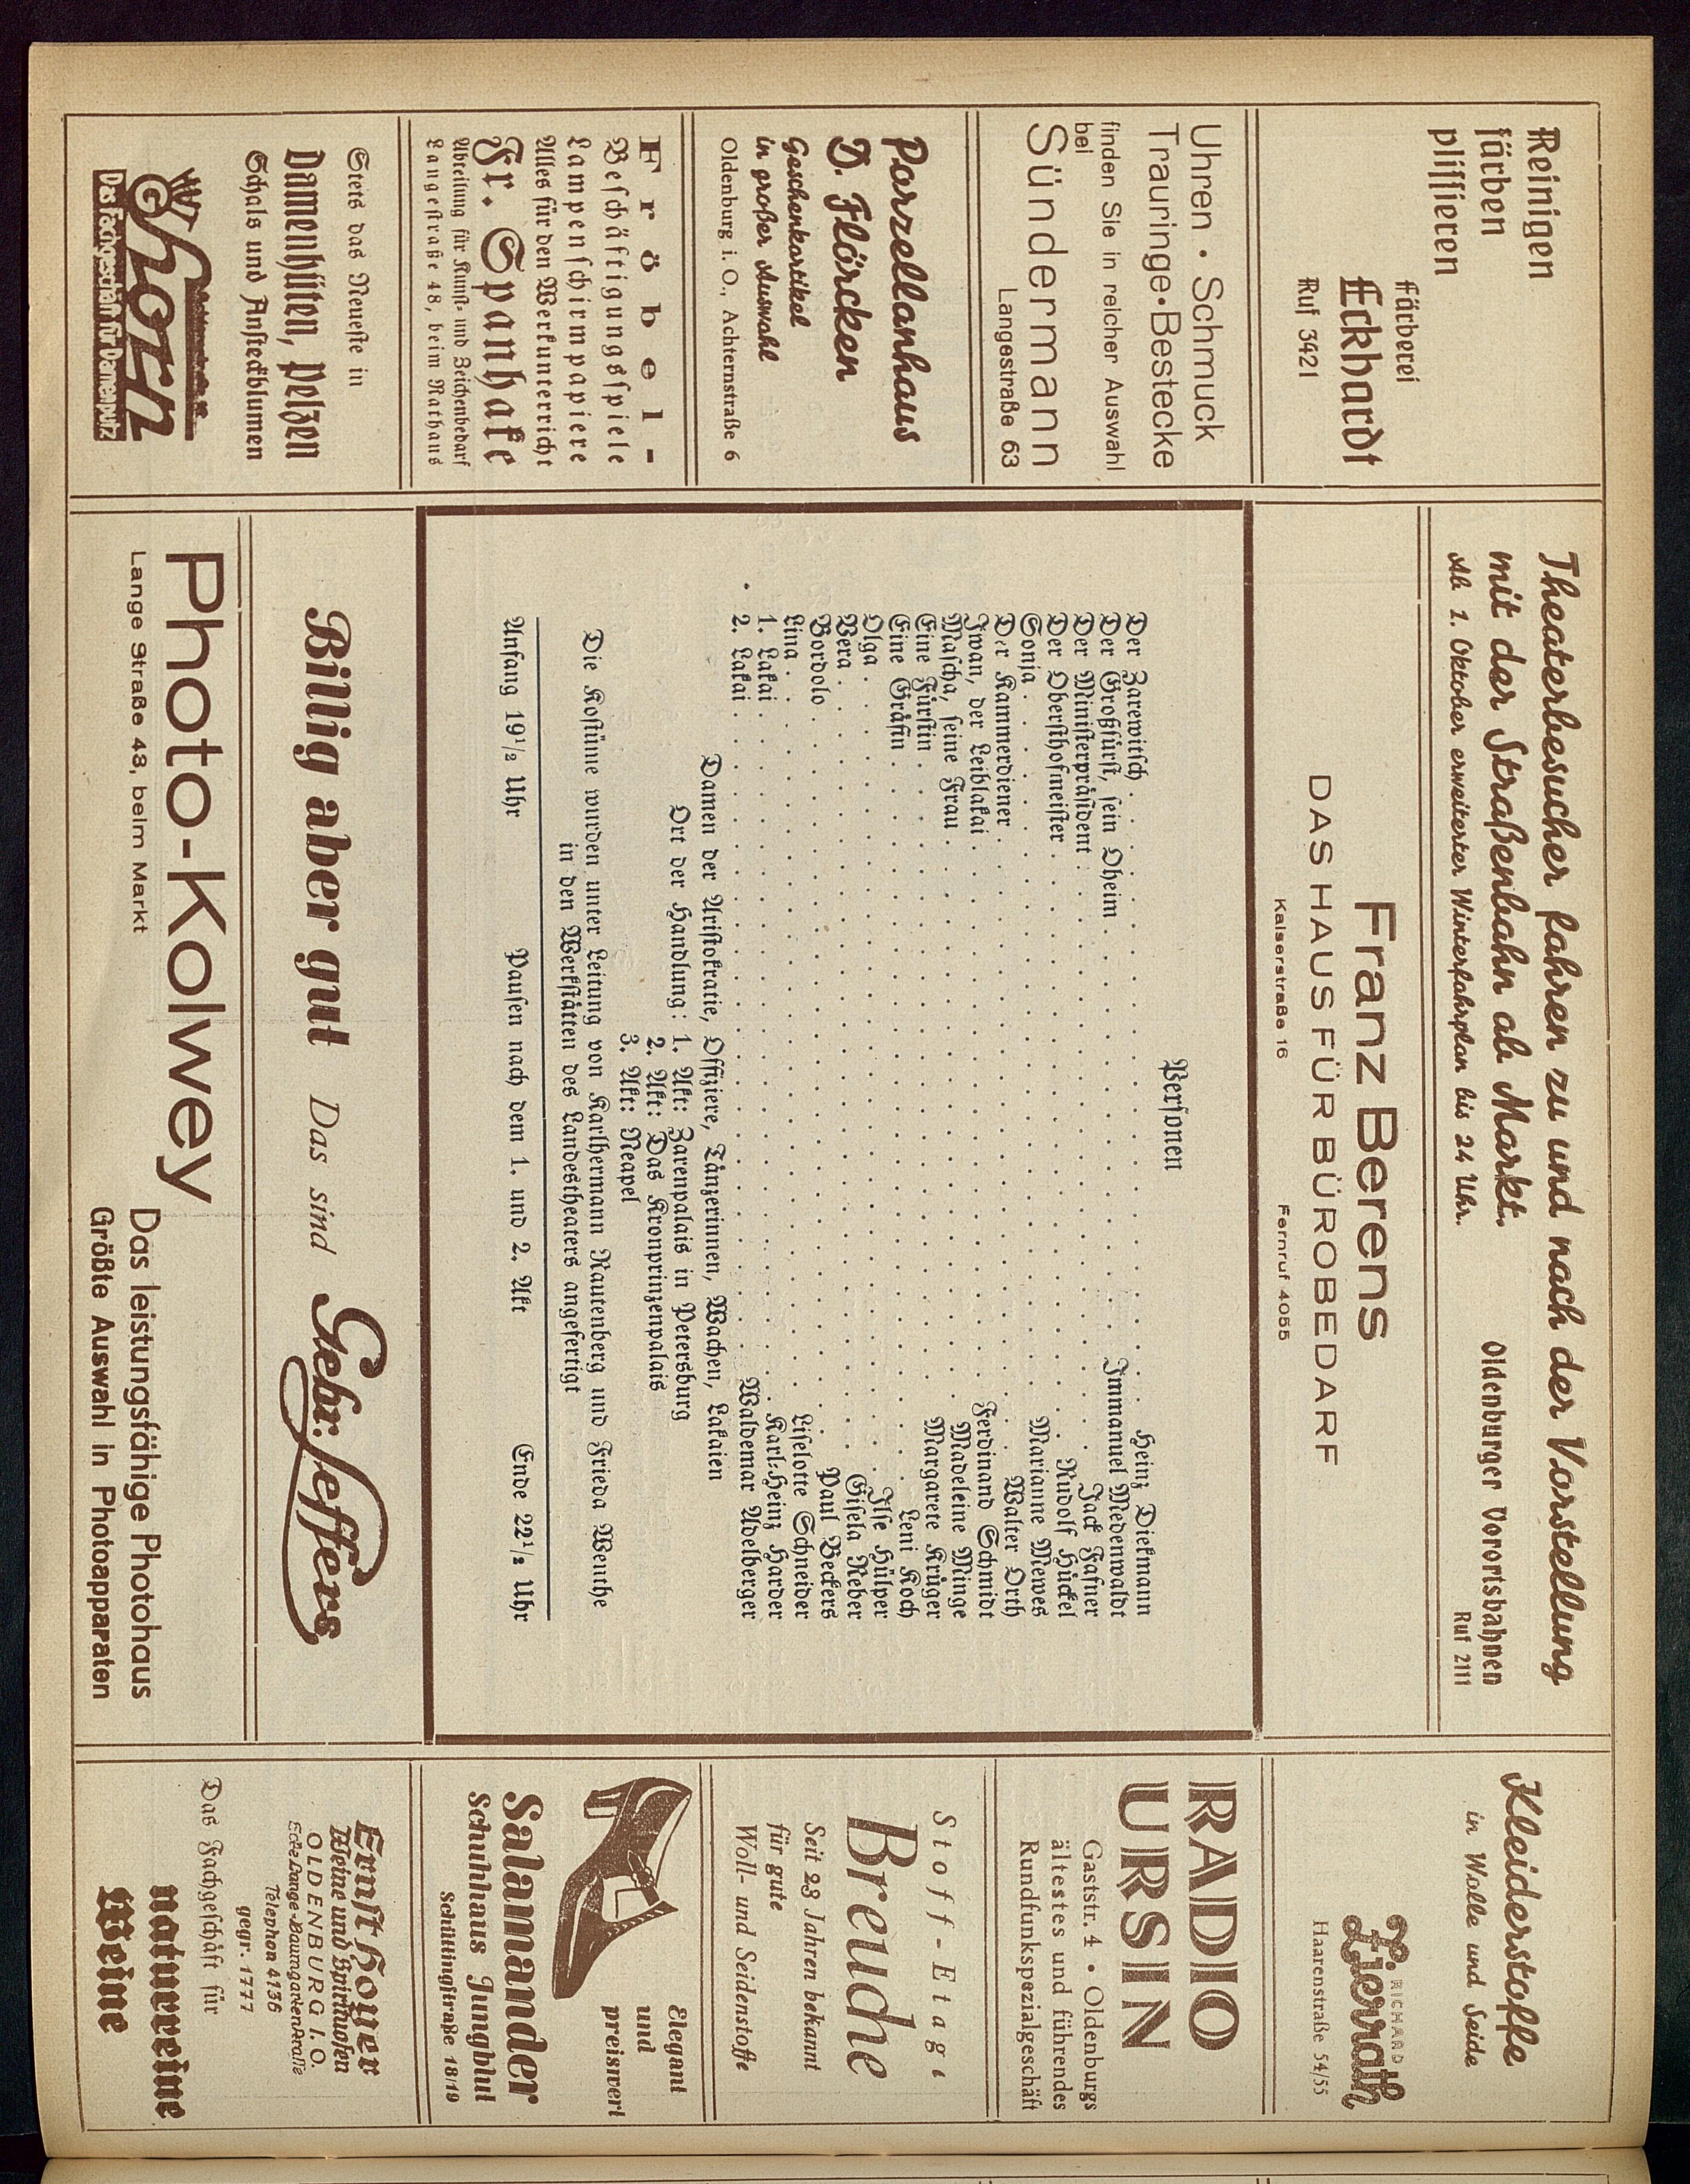 Reinigen
färben
plissieren
Färberei
Eckhardt
Ruf 3421
Uhren • Schmuck
Trauringe • Bestecke
finden Sie in reicher Auswahl
bei
Sündermann
Langestraße 63
Porzellanhaus
D. Flörcken
Geschenkartikel
in großer Auswahl
Oldenburg i. O., Achternstraße 6
Fröbel-
Beschäftigungsspiele
Lampenschirmpapiere
Alles für den Werkunterricht
Fr. Spanhake
Abteilung für Kunst- und Zeichenbedarf
Langestraße 48, beim Rathaus
Stets das Neueste in
Damenhüten, Pelzen
Schals und Ansteckblumen
Ghorn
Das Fachgeschäft für Damenputz
Theaterbesucher fahren zu und nach der Vorstellung
mit der Straßenbahn ab Markt.
Ab 1. Oktober erweiterter Winterfahrplan bis 24 Uhr.
Oldenburger Vorortsbahnen
Ruf 2111
Franz Berens
DAS HAUS FÜR BÜROBEDARF
Kaiserstraße 16 Fernruf 4055
Personen
Der Zarewitsch . . . Heinz Diekmann
Der Großfürst, sein Oheim . . . Immanuel Medenwaldt
Der Ministerpräsident . . . Jack Fafner
Der Obersthofmeister . . . Rudolf Hückel
Sonja . . . Marianne Mewes
Der Kammerdiener . . . Walter Orth
Iwan, der Leiblakai . . . Ferdinand Schmidt
Mascha, seine Frau . . . Madeleine Minge
Eine Fürstin . . . Margarete Krüger
Eine Gräfin . . . Leni Koch
Olga . . . Ilse Hülper
Vera . . . Gisela Reber
Bordolo . . . Paul Beckers
Lina . . . Liselotte Schneider
1. Lakai . . . Karl-Heinz Harder
2. Lakai . . . Waldemar Adelberger
Damen der Aristokratie, Offiziere, Tänzerinnen, Wachen, Lakaien
Ort der Handlung: 1. Akt: Zarenpalais in Petersburg
2. Akt: Das Kronprinzenpalais
3. Akt: Neapel
Die Kostüme wurden unter Leitung von Karlhermann Rautenberg und Frieda Wenthe
in den Werkstätten des Landestheaters angefertigt
Anfang 19½ Uhr Pausen nach dem 1. und 2. Akt Ende 22½ Uhr
Billig aber gut Das sind Gebr. Leffers
Photo-Kolwey
Lange Straße 43, beim Markt
Das leistungsfähige Photohaus
Größte Auswahl in Photoapparaten
Kleiderstoffe
in Wolle und Seide
RICHARD
Zierrath
Haarenstraße 54/55
RADIO
URSIN
Gaststr. 4 • Oldenburgs
ältestes und führendes
Rundfunkspezialgeschäft
Stoff-Etage
Breuche
Seit 23 Jahren bekannt
für gute
Woll- und Seidenstoffe
Elegant
und
preiswert
Salamander
Schuhhaus Jungblut
Schüttingstraße 18/19
Ernst Hoyer
Weine und Spirituosen
OLDENBURG i. O.
Ecke Lange-Baumgartenstraße
Telephon 4136
gegr. 1777
Das Fachgeschäft für
naturreine
Weine